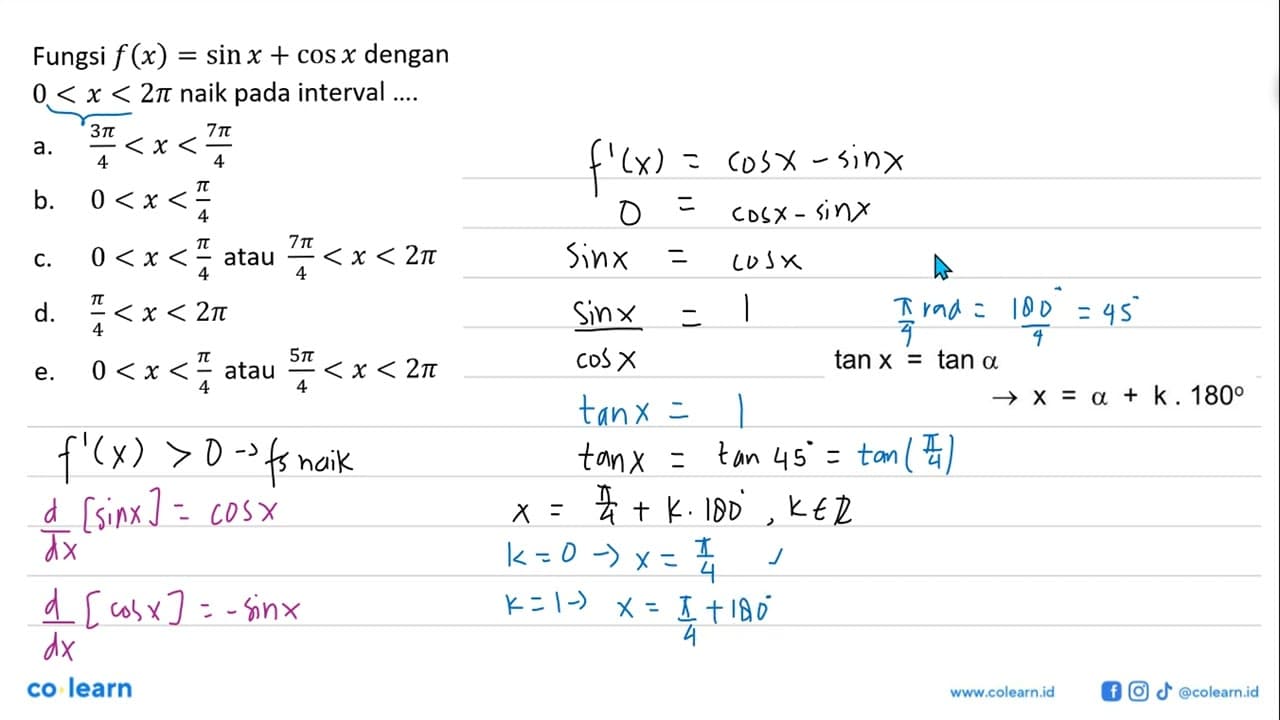 Fungsi f(x) = sin x + cos x dengan
0 < x < 2π naik pada interval ....
a. 3π/4 < x < 7π/4
b. 0 < x < π/4
c. 0 < x < π/4 atau 7π/4 < x < 2π
d. π/4 < x < 2π
e. 0 < x < π/4 atau 5π/4 < x < 2π
f'(x) > 0 → fs naik
d/dx [sinx] = cosx
d/dx [cosx] = -sinx
f'(x) = cosx - sinx
0 = cosx - sinx
sinx = cosx
sinx/cosx = 1
tanx = 1
tanx = tan 45° = tan(π/4)
x = π/4 + k. 180°, k ∈ Z
k = 0 → x = π/4
k = 1 → x = π/4 + 180°
π/4 rad = 180°/4 = 45°
tan x = tan α
→ x = α + k . 180°
co learn
www.colearn.id
@colearn.id